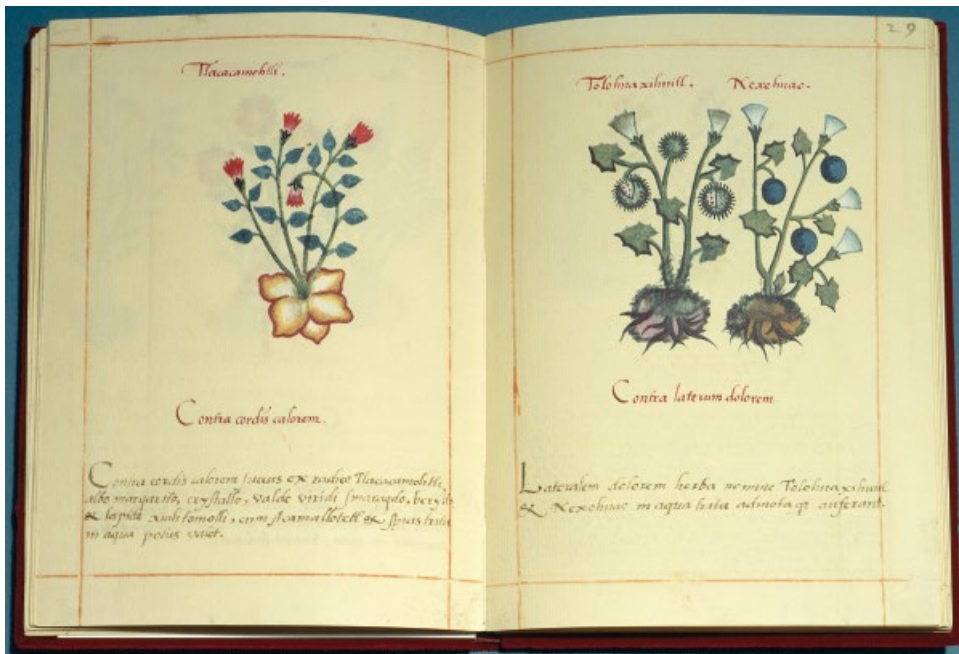 Tlacacamohtli.
Contra cordis calorem.
Contra cordis calorem succus ex radice Tlacacamohtli,
albo margarito, crystallo, valde viridi smaragdo, beryllo
& lapide xiuhtomolli, cum
in aqua potus valet.
29
Tolohuaxihuitl. Nexehuac.
Contra laterum dolorem
Lateralem dolorem herbæ nomine Tolohuaxihuitl
& Nexehuac in aqua tritæ admotæq; auferunt.